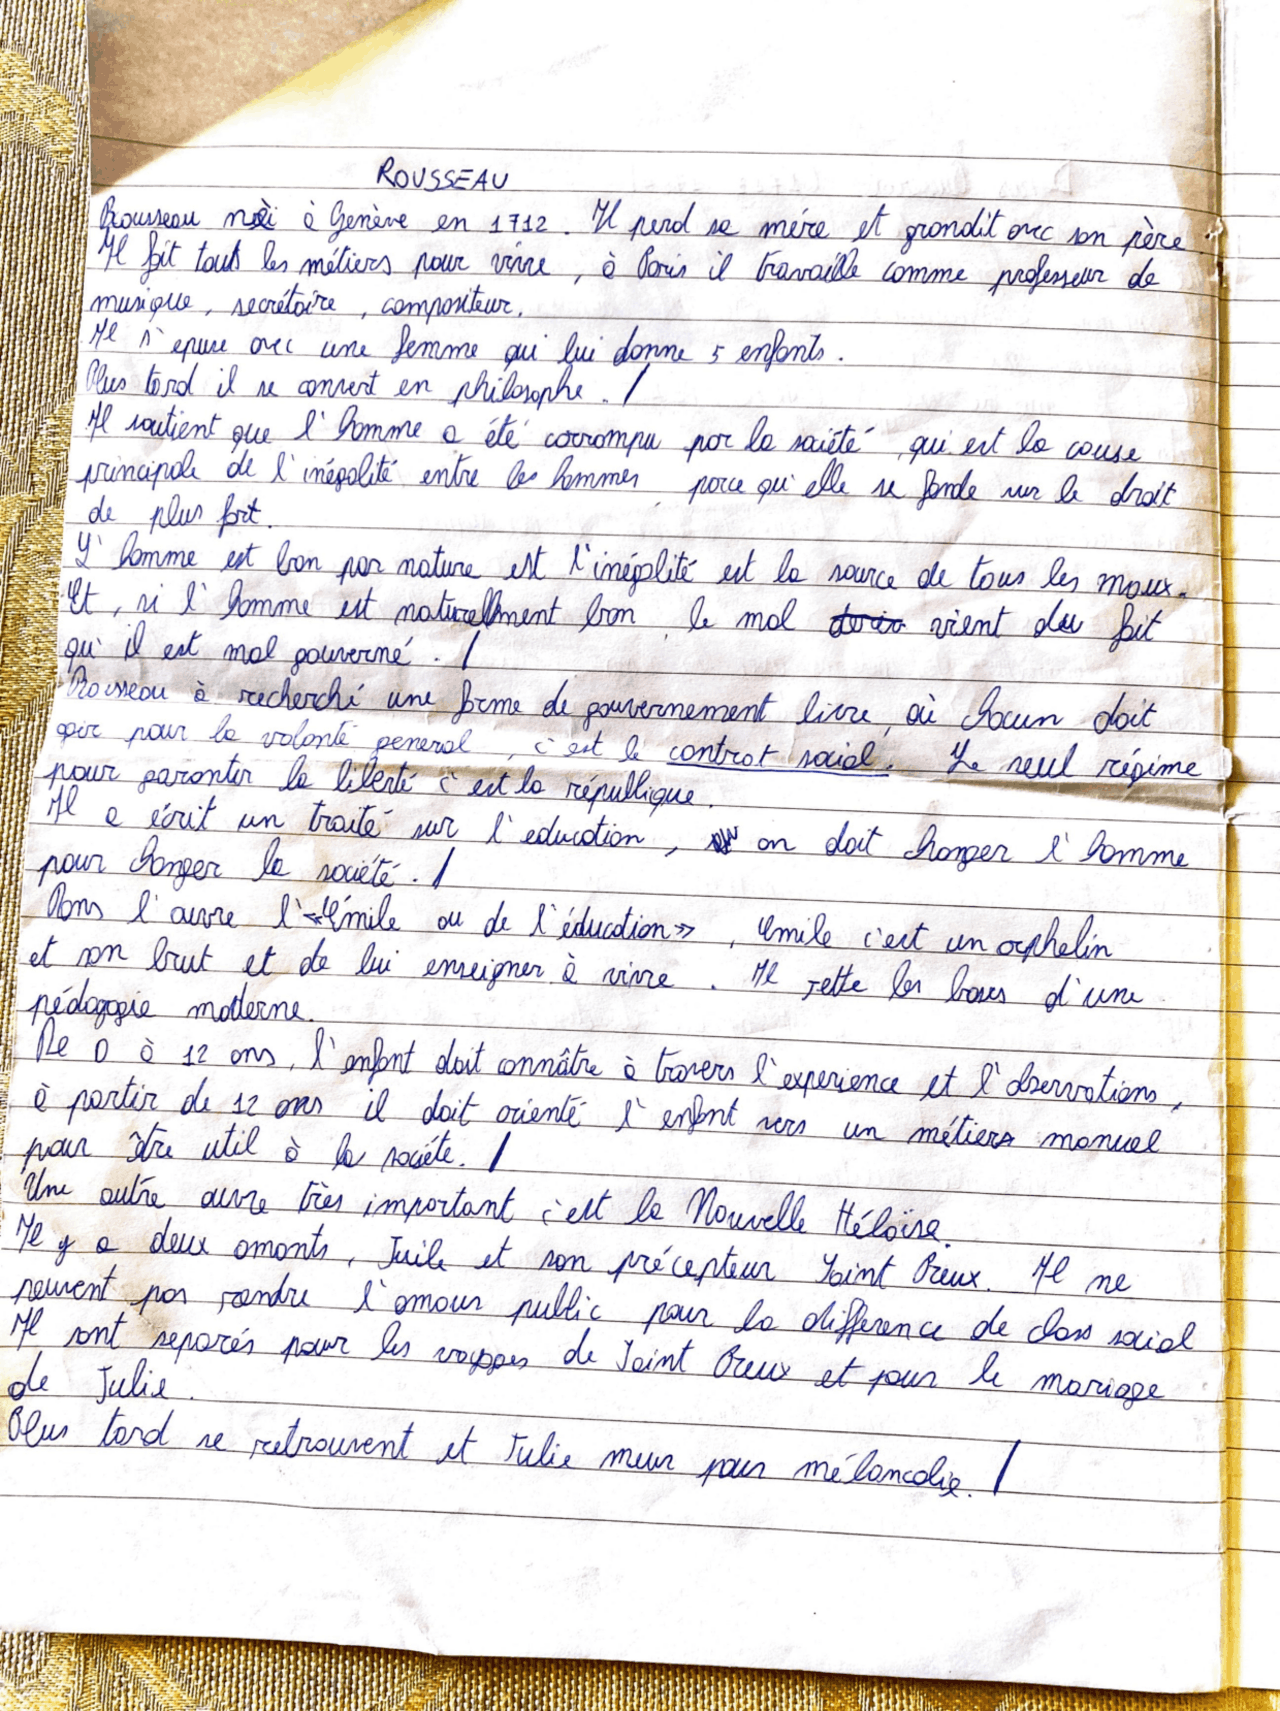 ROUSSEAU
Rousseau nèi à Genève en 1712. Il perd sa mére et grandit avec son père.
Il fait touts les métiers pour vivre, à Paris il travaille comme professeur de
musique, secrétaire, compositeur.
Il s'epuse avec une femme qui lui donne 5 enfants.
Plus tard il se convert en philosophe. /
Il soutient que l'homme a été corrompu par la société, qui est la cause
principale de l'inégalité entre les hommes, parce qu'elle se fonde sur le droit
de plus fort.
L'homme est bon par nature est l'inégalité est la source de tous les maux.
Et, si l'homme est naturellment bon, le mal vient du fait
qu'il est mal gouverné. /
Rousseau à recherché une forme de gouvernement livre, où chacun doit
agir pour la volonté general, c'est le contrat social. Le seul régime
pour garantir la liberté c'est la républlique.
Il a écrit un traité sur l'education, on doit changer l'homme
pour changer la société. /
Dans l'auvre l'«Émile ou de l'éducation», Emile c'est un orphelin
et son brut et de lui enseigner à vivre. Il jette les bases d'une
pédagogie moderne.
De 0 à 12 ans, l'enfant doit connâtre à travers l'experience et l'observations,
à partir de 12 ans il doit orienté l'enfant vers un métiers manuel
pour être util à la société. /
Une autre auvre très important c'est la Nouvelle Héloïse.
Il y a deux amants, Juile et son précepteur Saint Preux. Il ne
peuvent pas randre l'amour public pour la difference de class social
Il sont separés pour les voyages de Saint Preux et pour le mariage
de Julie.
Plus tard se retrouvent et Julie meur pour mélancolie. /